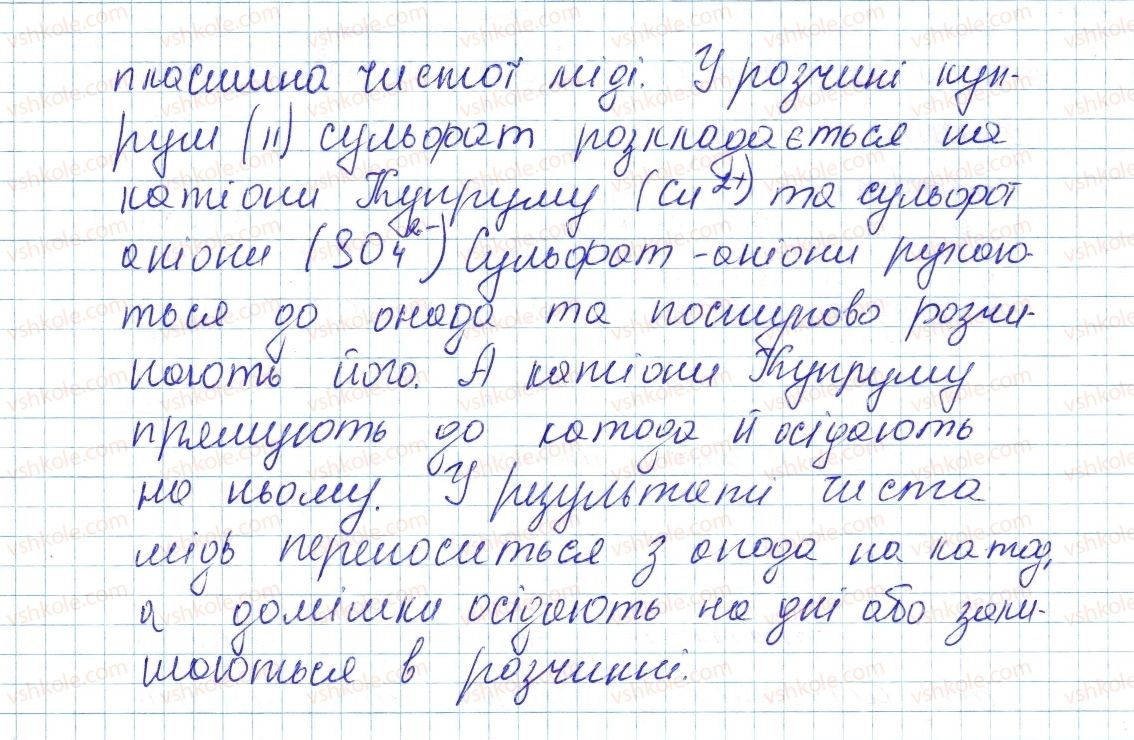 пластина чистої міді. У розчині куп-
рум (II) сульфат розкладається на
катіони Купруму (Cu²⁺) та сульфат
аніони (SO₄²⁻) Сульфат-аніони рухаю-
ться до анада та поступово розчи-
няють його. А катіони Купруму
прямують до катода й осідають
на ньому. У результаті чиста
мідь переноситься з анода на катод,
а домішки осідають на дні або зали-
шаються в розчинні.